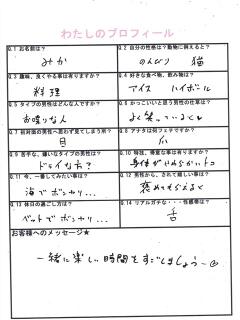 わたしのプロフィール
Q.1 お名前は?
Q.2 自分の性格は?動物に例えると?
みか
のんびり 猫
Q.3 趣味、良くやる事は有りますか?
Q.4 好きな食べ物、飲み物は?
料理
アイス ハイボール
Q.5 タイプの男性はどんな人ですか?
Q.6 かっこいいと思う男性の仕草は?
お喋りな人
よく笑っている
Q.7 初対面の男性へ思わず見てしまう所?
Q.8 アナタは何フェチですか?
目
爪
Q.9 苦手な、嫌いなタイプの男性は?
Q.10 特技、得意な事は有りますか?
ドライな方?
身体がやわらかいトコ
Q.11 今、一番してみたい事は?
Q.12 男性から、されて嬉しい事は?
海でボンヤリ...
褒めてもらえると
Q.13 休日の過ごし方は?
Q.14 リアルガチな・・・性感帯は?
ベットでボンヤリ...
舌
お客様へのメッセージ★
一緒に楽しい時間をすごしましょう〜